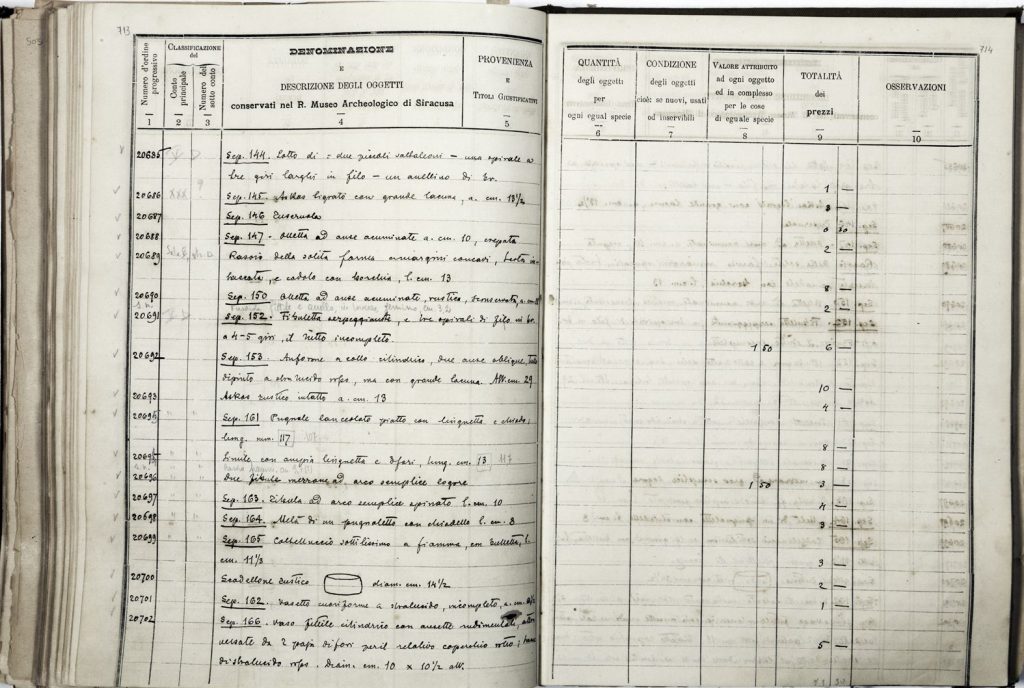 713
CLASSIFICAZIONE
del
Numero d'ordine progressivo
Conto principale
Numero del sotto conto
DENOMINAZIONE
E
DESCRIZIONE DEGLI OGGETTI
conservati nel R. Museo Archeologico di Siracusa
PROVENIENZA
E
TITOLI GIUSTIFICATIVI
1 2 3 4 5
20685 Sep. 144. Lotto di = due piccoli saltaleoni — una spirale a
tre giri larghi in filo — un anellino di br.
20686 XXX Sep. 145. Askos ligato con grande lacuna, a. cm. 13 1/2
20687 Sep. 146
20688 Sep. 147. Olletta ad anse acuminate a. cm. 10, crepata
20689 Rasoio della solita forma a margini concavi, testa in-
taccata, e codolo con borchia, l. cm. 13
20690 Sep. 150 Olletta ad anse acuminate, rustica, sconservata, a. cm.
20691 Sep. 152. Fibuletta serpeggiante, e tre spirali di filo in br.
a 4-5 giri, il tutto incompleto.
20692 Sep. 153. Anforone a collo cilindrico, due anse oblique, tutto
dipinto a stralucido ross, ma con grande lacuna. Alt. cm. 29
20693 Askos rustico intatto a. cm. 13
20694 Sep. 161 Pugnale lanceolato piatto con linguetta e chiodo,
lung. mm. 117
20695 Simile con ampia linguetta e 2 fori, lung. cm. 13 117
20696 Due fibule mezzane ad arco semplice logore
20697 Sep. 163. Fibula ad arco semplice spinato l. cm. 10
20698 Sep. 164. Metà di un pugnaletto con chiodello l. cm. 8
20699 Sep. 165 Coltelluccio sottilissimo a fiamma, con bulletta, l.
cm. 11 1/3
20700 Scodellone rustico diam. cm. 14 1/2
20701 Sep. 162. Vasetto cuoriforme a stralucido, incompleto, a. cm.
20702 Sep. 166. Vaso fittile cilindrico con ansette rudimentali, attra
versate da 2 paja di fori per il relativo coperchio rotto;
di stralucido ross. Diam. cm. 10 x 10 1/2 alt.
714
QUANTITÀ
degli oggetti
per
ogni egual specie
CONDIZIONE
degli oggetti
cioè: se nuovi, usati
od inservibili
VALORE ATTRIBUITO
ad ogni oggetto
ed in complesso
per le cose
di eguale specie
TOTALITÀ
dei
prezzi
OSSERVAZIONI
6 7 8 9 10
1 —
3 —
0 50
2 —
8 —
2 —
1 50 6 —
10 —
4 —
8 —
8 —
1 50 3 —
4 —
3 —
3 —
2 —
1 —
5 —